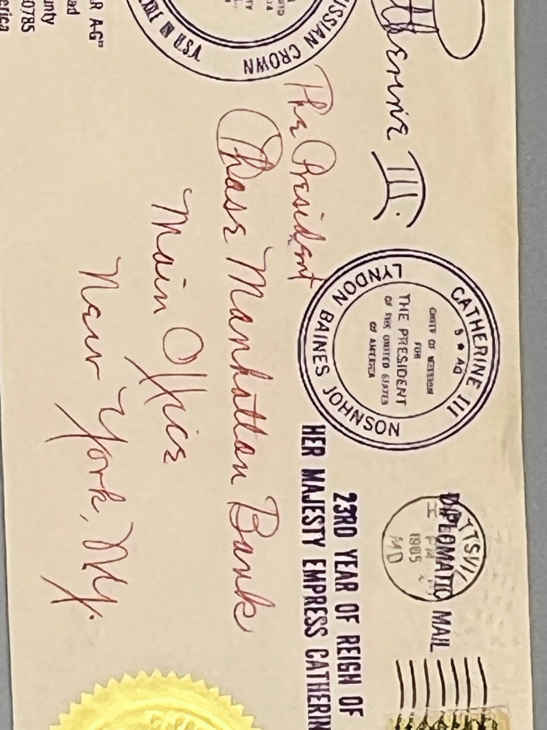 R A-G"
ad
unty
0785
erica
USSIAN CROWN
Catherine III.
The President
Chase Manhattan Bank
Main Office
New York, Ny.
CATHERINE III
LYNDON BAINES JOHNSON
CHIEF OF MISSION
FOR
THE PRESIDENT
OF THE UNITED STATES
OF AMERICA
DIPLOMATIC MAIL
TTSVIL
PM
1985
MD
23RD YEAR OF REIGN OF
HER MAJESTY EMPRESS CATHERIN